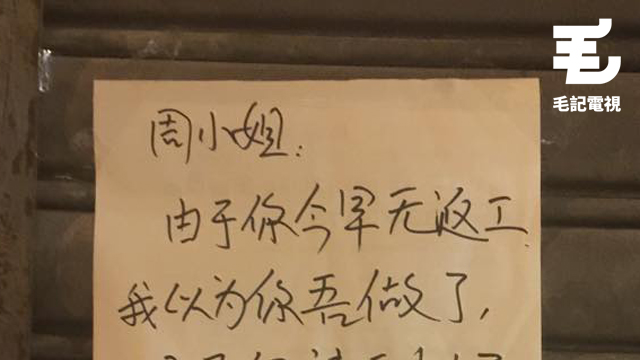 毛記電視
周小姐:
由于你今早无返工
我以为你吾做了,